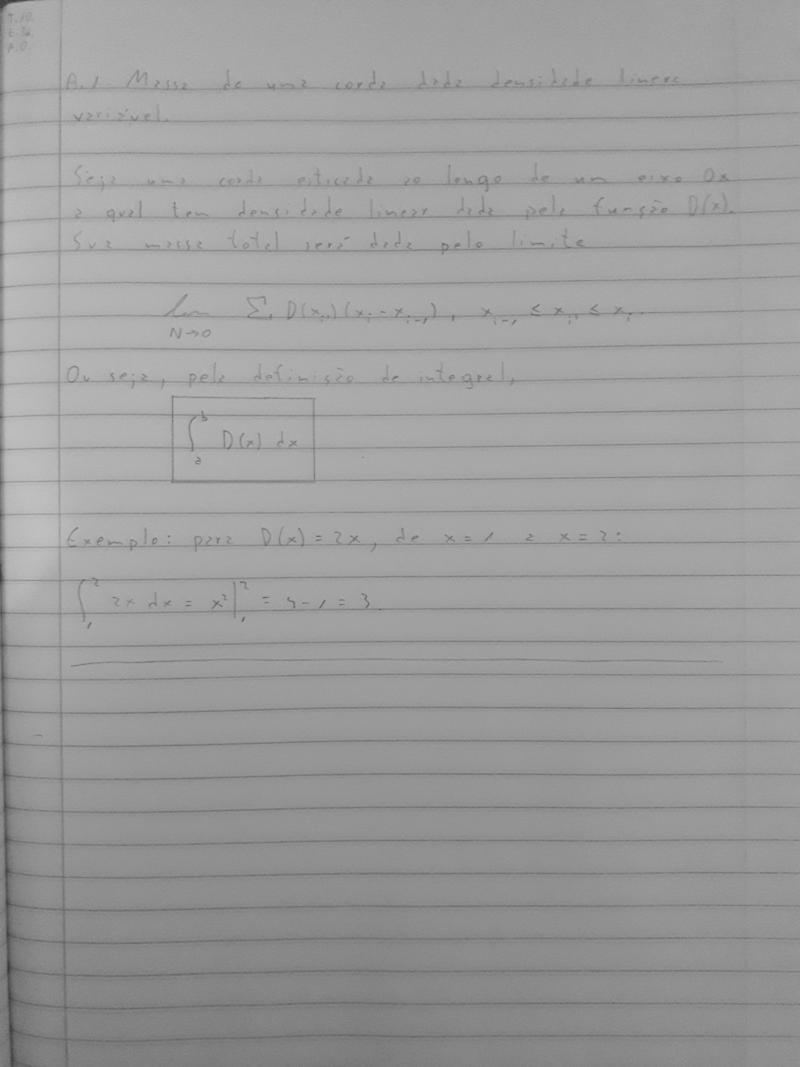 A.1 Massa de uma corda dada densidade linear
variável.
Seja uma corda esticada ao longo de um eixo Ox
a qual tem densidade linear dada pela função D(x).
Sua massa total será dada pelo limite
lim N→0 Σ D(x_i,)(x_i - x_{i-1}), x_{i-1} ≤ x_i, ≤ x_i.
Ou seja, pela definisão de integral,
∫_a^b D(x) dx
Exemplo: para D(x) = 2x, de x = 1 a x = 2:
∫_1^2 2x dx = x²|_1^2 = 4 - 1 = 3.